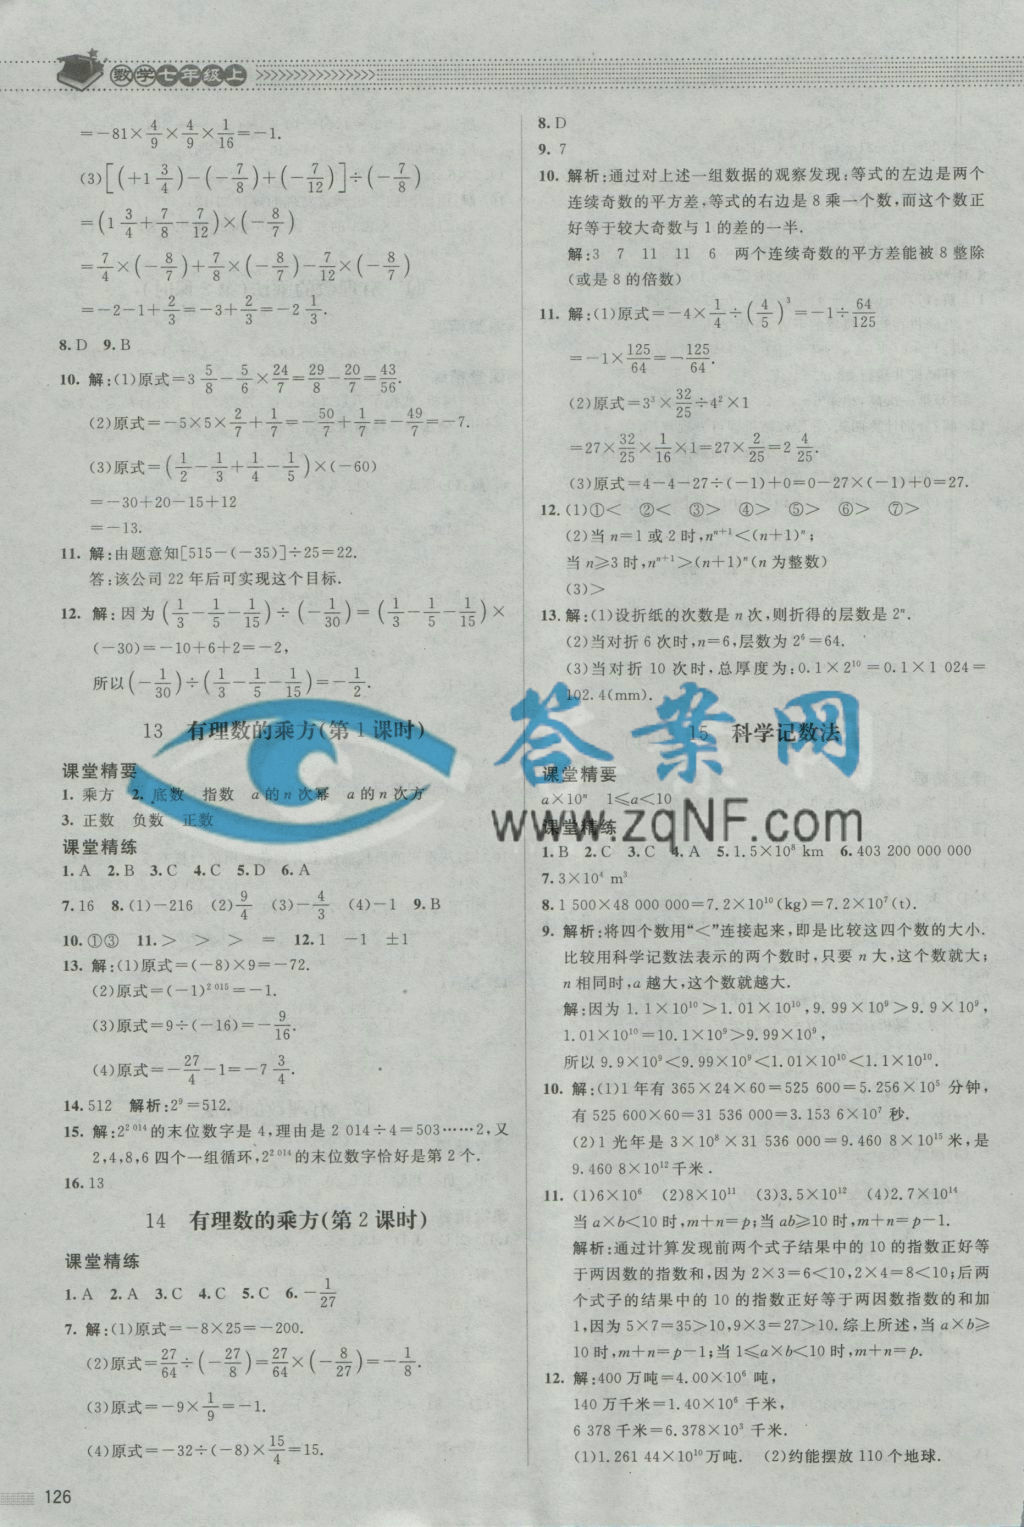 数学七年级上
=-81×4/9×4/9×1/16=-1.
(3)[(+1 3/4)-(-7/8)+(-7/12)]÷(-7/8)
=(1 3/4+7/8-7/12)×(-8/7)
=7/4×(-8/7)+7/8×(-8/7)-7/12×(-8/7)
=-2-1+2/3=-3+2/3=-2 1/3.
8.D 9.B
10. 解:(1)原式=3 5/8-5/6×24/7=29/8-20/7=43/56.
(2)原式=-5×5×2/7+1/7=-50/7+1/7=-49/7=-7.
(3)原式=(1/2-1/3+1/4-1/5)×(-60)
=-30+20-15+12
=-13.
11. 解:由题意知[515-(-35)]÷25=22.
答:该公司 22 年后可实现这个目标.
12. 解:因为(1/3-1/5-1/15)÷(-1/30)=(1/3-1/5-1/15)×
(-30)=-10+6+2=-2,
所以(-1/30)÷(1/3-1/5-1/15)=-1/2.
13 有理数的乘方(第 1 课时)
课堂精要
1. 乘方 2. 底数 指数 a 的 n 次幂 a 的 n 次方
3. 正数 负数 正数
课堂精练
1.A 2.B 3.C 4.C 5.D 6.A
7.16 8.(1)-216 (2)9/4 (3)-4/3 (4)-1 9.B
10.①③ 11.> > > = 12.1 -1 ±1
13. 解:(1)原式=(-8)×9=-72.
(2)原式=(-1)^2 015=-1.
(3)原式=9÷(-16)=-9/16.
(4)原式=-27/4-1=-7 3/4.
14.512 解析:2⁹=512.
15. 解:2^2 014的末位数字是 4,理由是 2 014÷4=503……2,又
2,4,8,6 四个一组循环,2^2 014的末位数字恰好是第 2 个.
16.13
14 有理数的乘方(第 2 课时)
课堂精练
1.A 2.A 3.C 4.C 5.C 6.-1/27
7. 解:(1)原式=-8×25=-200.
(2)原式=27/64÷(-27/8)=27/64×(-8/27)=-1/8.
(3)原式=-9×1/9=-1.
(4)原式=-32÷(-8)×15/4=15.
126
8.D
9.7
10. 解析:通过对上述一组数据的观察发现:等式的左边是两个
连续奇数的平方差,等式的右边是 8 乘一个数,而这个数正
好等于较大奇数与 1 的差的一半.
解:3 7 11 11 6 两个连续奇数的平方差能被 8 整除
(或是 8 的倍数)
11. 解:(1)原式=-4×1/4÷(4/5)³=-1÷64/125
=-1×125/64=-125/64.
(2)原式=3³×32/25÷4²×1
=27×32/25×1/16×1=27×2/25=2 4/25.
(3)原式=4-4-27÷(-1)+0=0-27×(-1)+0=27.
12.(1)①< ②< ③> ④> ⑤> ⑥> ⑦>
(2)当 n=1 或 2 时,nⁿ⁺¹<(n+1)ⁿ;
当 n≥3 时,nⁿ⁺¹>(n+1)ⁿ(n 为整数)
(3)>
13. 解:(1)设折纸的次数是 n 次,则折得的层数是 2ⁿ.
(2)当对折 6 次时,n=6,层数为 2⁶=64.
(3)当对折 10 次时,总厚度为:0.1×2¹⁰=0.1×1 024=
102.4(mm).
15 科学记数法
答案网
www.zqNF.com
课堂精要
a×10ⁿ 1≤a<10
课堂精练
1.B 2.C 3.C 4.A 5.1.5×10⁸ km 6.403 200 000 000
7.3×10⁴ m³
8.1 500×48 000 000=7.2×10¹⁰(kg)=7.2×10⁷(t).
9. 解析:将四个数用“<”连接起来,即是比较这四个数的大小.
比较用科学记数法表示的两个数时,只要 n 大,这个数就大;
n 相同时,a 越大,这个数就越大.
解:因为 1.1×10¹⁰>1.01×10¹⁰,9.99×10⁹>9.9×10⁹,
1.01×10¹⁰=10.1×10⁹>9.99×10⁹,
所以 9.9×10⁹<9.99×10⁹<1.01×10¹⁰<1.1×10¹⁰.
10. 解:(1)1 年有 365×24×60=525 600=5.256×10⁵ 分钟,
有 525 600×60=31 536 000=3.153 6×10⁷ 秒.
(2)1 光年是 3×10⁸×31 536 000=9.460 8×10¹⁵ 米,是
9.460 8×10¹²千米.
11.(1)6×10⁶ (2)8×10¹¹ (3)3.5×10¹² (4)2.7×10¹⁴
当 a×b<10 时,m+n=p;当 ab≥10 时,m+n=p-1.
解析:通过计算发现前两个式子结果中的 10 的指数正好等
于两因数的指数和,因为 2×3=6<10,2×4=8<10;后两
个式子的结果中的 10 的指数正好等于两因数指数的和加
1,因为 5×7=35>10,9×3=27>10.综上所述,当 a×b≥
10 时,m+n=p-1;当 1≤a×b<10 时,m+n=p.
12. 解:400 万吨=4.00×10⁶ 吨,
140 万千米=1.40×10⁶ 千米,
6 378 千米=6.378×10³ 千米,
(1)1.261 44×10¹⁰万吨. (2)约能摆放 110 个地球.